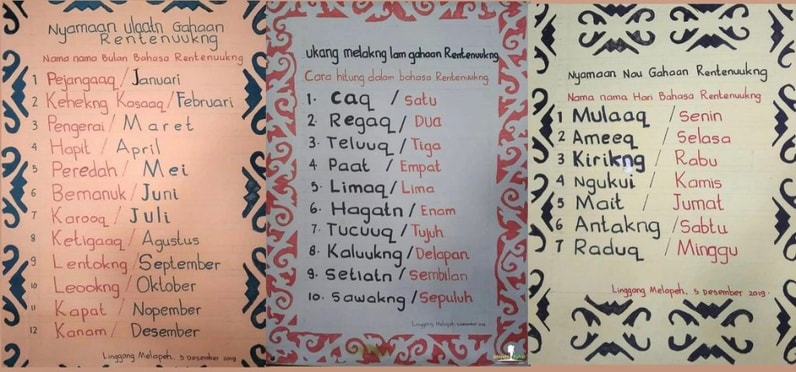 Nyamaan ulaatn Gahaan
Rentenuukng
Nama nama Bulan Bahasa Rentenuukng
1 Pejangaaq / Januari
2 Kehekng Kosaaq / Februari
3 Pengerai / Maret
4 Hapit / April
5 Peredah / Mei
6 Bemanuk / Juni
7 Karooq / Juli
8 Ketigaaq / Agustus
9 Lentokng / September
10 Leookng / Oktober
11 Kapat / Nopember
12 Kanam / Desember
Linggang Melapeh, 5 Desember 2019
ukang melakng lam gahaan Rentenuukng
Cara hitung dalam bahasa Rentenuukng
1. Caq / satu
2. Regaq / Dua
3. Teluuq / Tiga
4 Paat / Empat
5. Limaq / Lima
6. Hagatn / Enam
7. Tucuuq / Tujuh
8. Kaluukng / Delapan
9. Setiatn / Sembilan
10. Sawakng / Sepuluh
Linggang Melapeh,
Nyamaan Nau Gahaan Rentenuukng
Nama nama Hari Bahasa Rentenuukng
1 Mulaaq / Senin
2 Ameeq / Selasa
3 Kirikng / Rabu
4 Ngukui / Kamis
5 Mait / Jumat
6 Antakng / Sabtu
7 Raduq / Minggu
Linggang Melapeh, 5 Desember 2019.